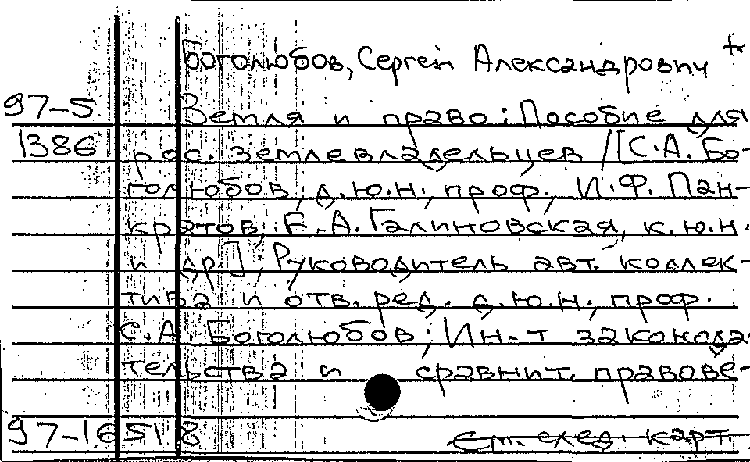 Боголюбов, Сергей Александрович +
97-5 Земля и право: Пособие для
1386 рос. землевладельцев / [С.А. Бо-
голюбов, д.ю.н., проф., И.Ф. Пан-
кратов, Е.А. Галиновская, к.ю.н.
и др.]; Руководитель авт. коллек-
тива и отв. ред. д.ю.н., проф.
С.А. Боголюбов; Ин-т законода-
тельства и сравнит. правове-
97-16518 См. след. карт.